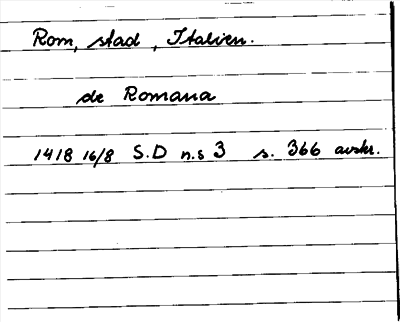 Rom, stad, Italien.
de Romana
1418 16/8 S.D n.s 3 s. 366 avskr.